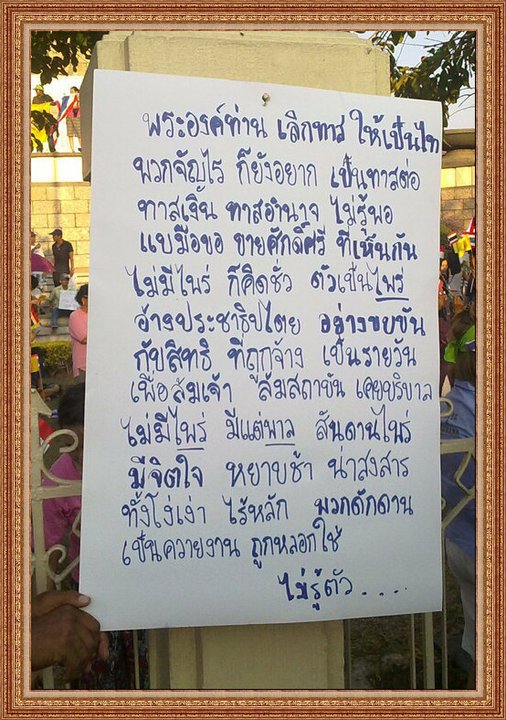 พระองค์ท่าน เลิกทาส ให้เป็นไท
พวกจัญไร ก็ยังอยาก เป็นทาสต่อ
ทาสเงิน ทาสอำนาจ ไม่รู้พอ
แบมือขอ ขายศักดิ์ศรี ที่เห็นกัน
ไม่มีไพร่ ก็คิดชั่ว ตัวเป็นไพร่
อ้างประชาธิปไตย อย่างขบขัน
กับสิทธิ ที่ถูกจ้าง เป็นรายวัน
เพื่อล้มเจ้า ล้มสถาบัน เคยบริบาล
ไม่มีไพร่ มีแต่พาล สันดานไพร่
มีจิตใจ หยาบช้า น่าสงสาร
ทั้งโง่เง่า ไร้หลัก พวกดักดาน
เป็นควายงาน ถูกหลอกใช้
ไม่รู้ตัว....